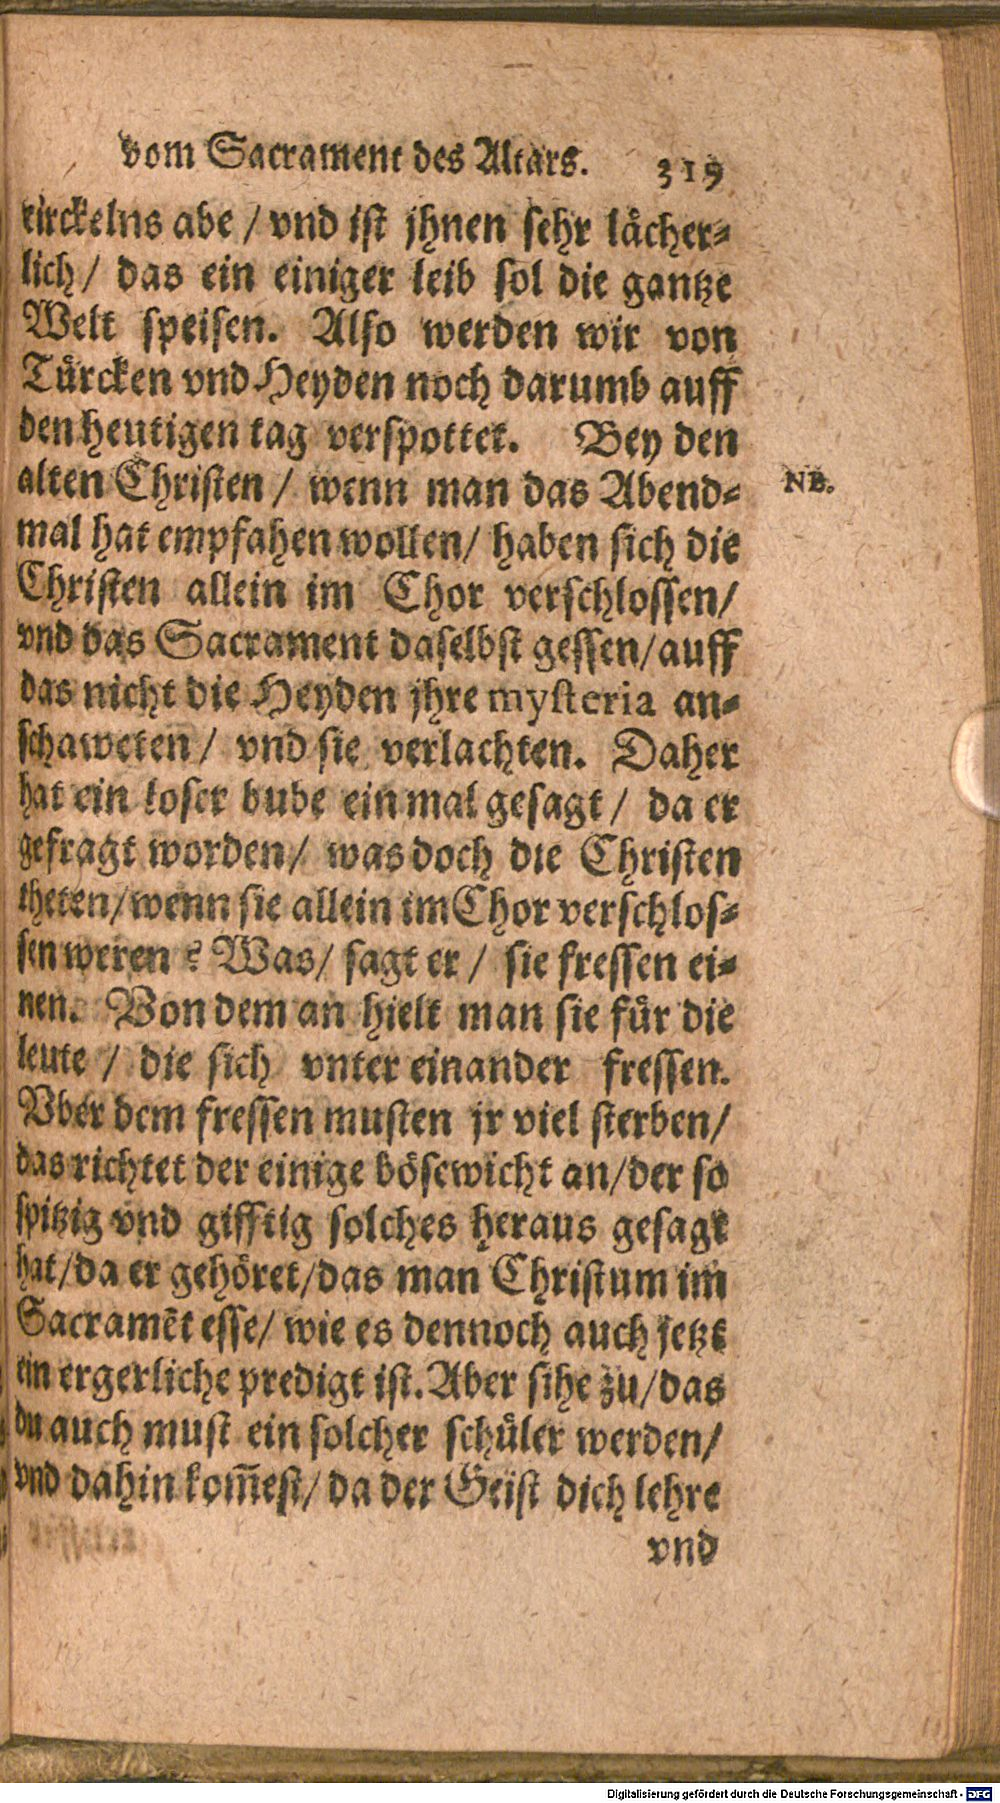 vom Sacrament des Altars. 319
eirckelns abe / vnd ist jhnen sehr lächer⸗
lich / das ein einiger leib sol die gantze
Welt speisen. Also werden wir von
Türcken vnd Heyden noch darumb auff
den heutigen tag verspottet. Bey den
alten Christen / wenn man das Abend⸗
NB.
mal hat empfahen wollen / haben sich die
Christen allein im Chor verschlossen /
vnd das Sacrament daselbst gessen / auff
das nicht die Heyden jhre mysteria an⸗
schaweten / vnd sie verlachten. Daher
hat ein loser bube ein mal gesagt / da er
gefragt worden / was doch die Christen
theten / wenn sie allein im Chor verschlos⸗
sen weren ? Was / sagt er / sie fressen ei⸗
nen. Von dem an hielt man sie für die
leute / die sich vnter einander fressen.
Vber dem fressen musten jr viel sterben /
das richtet der einige bösewicht an / der so
spitzig vnd gifftig solches heraus gesagt
hat / da er gehöret / das man Christum im
Sacramēt esse / wie es dennoch auch jetzt
ein ergerliche predigt ist. Aber sihe zu / das
du auch must ein solcher schüler werden /
vnd dahin kom̄est / da der Geist dich lehre
vnd
Digitalisierung gefördert durch die Deutsche Forschungsgemeinschaft - DFG